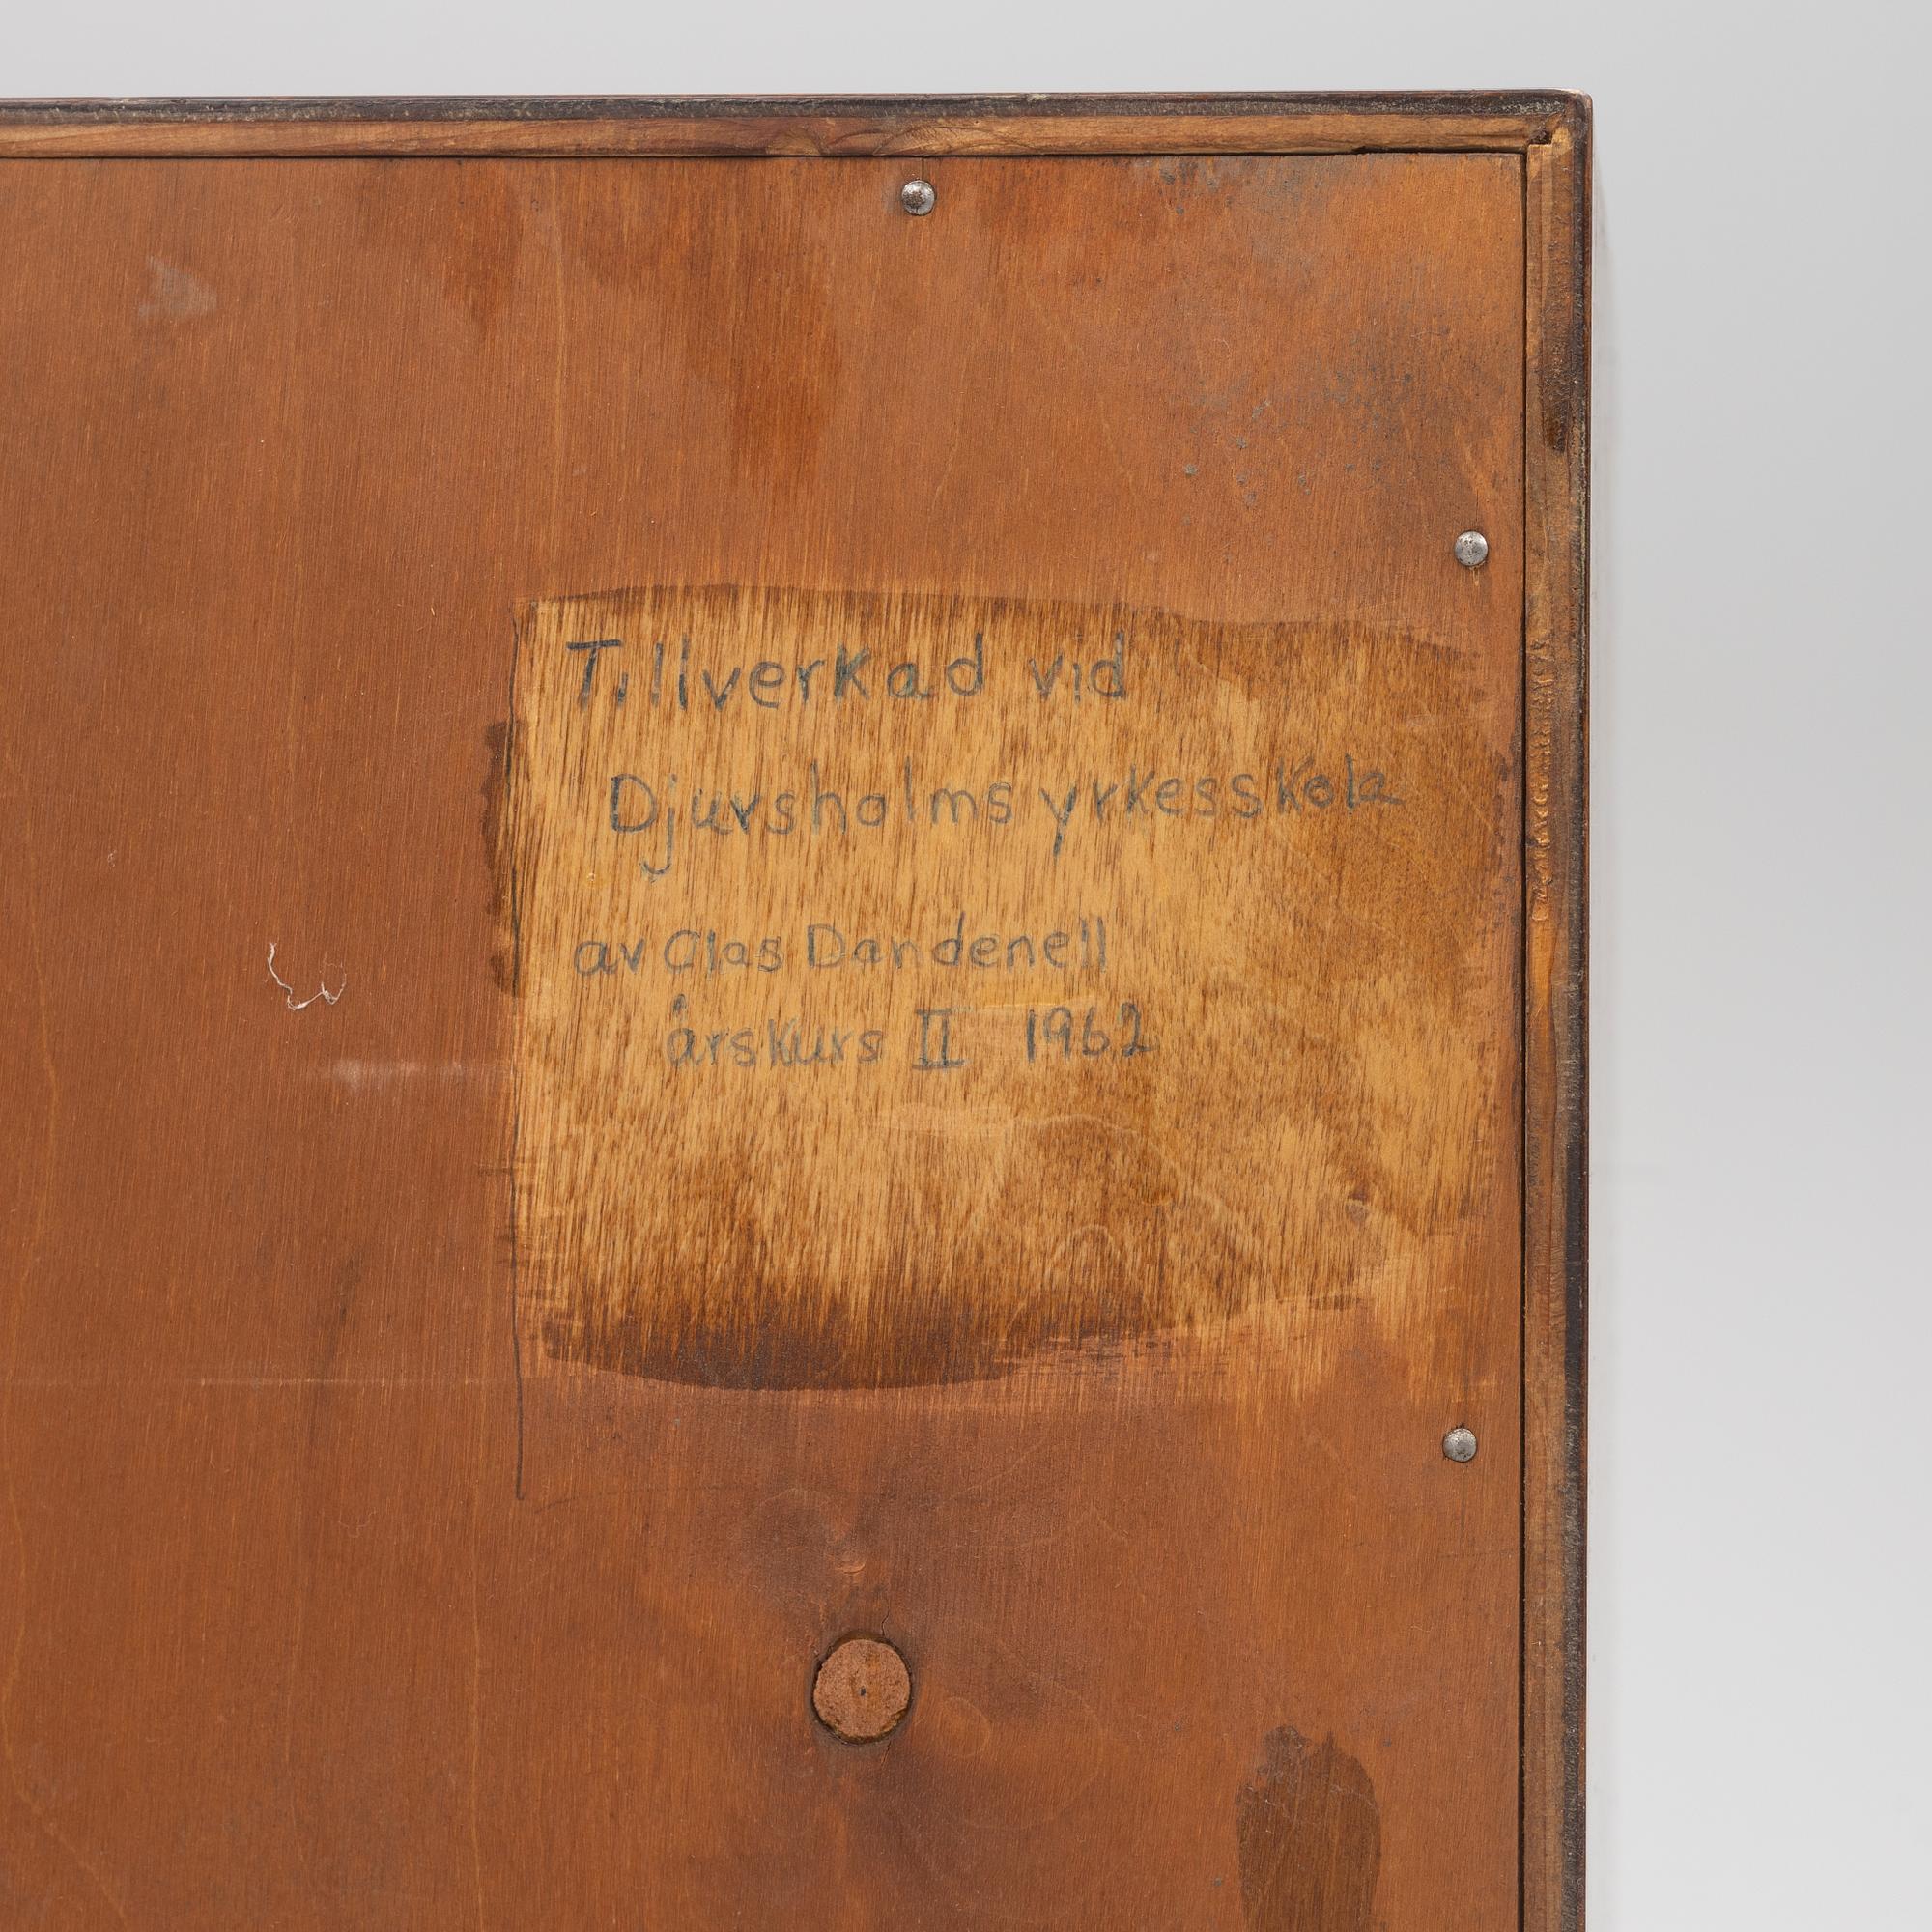 Tillverkad vid
Djursholms yrkesskola
av Clas Dandenell
årskurs II 1962